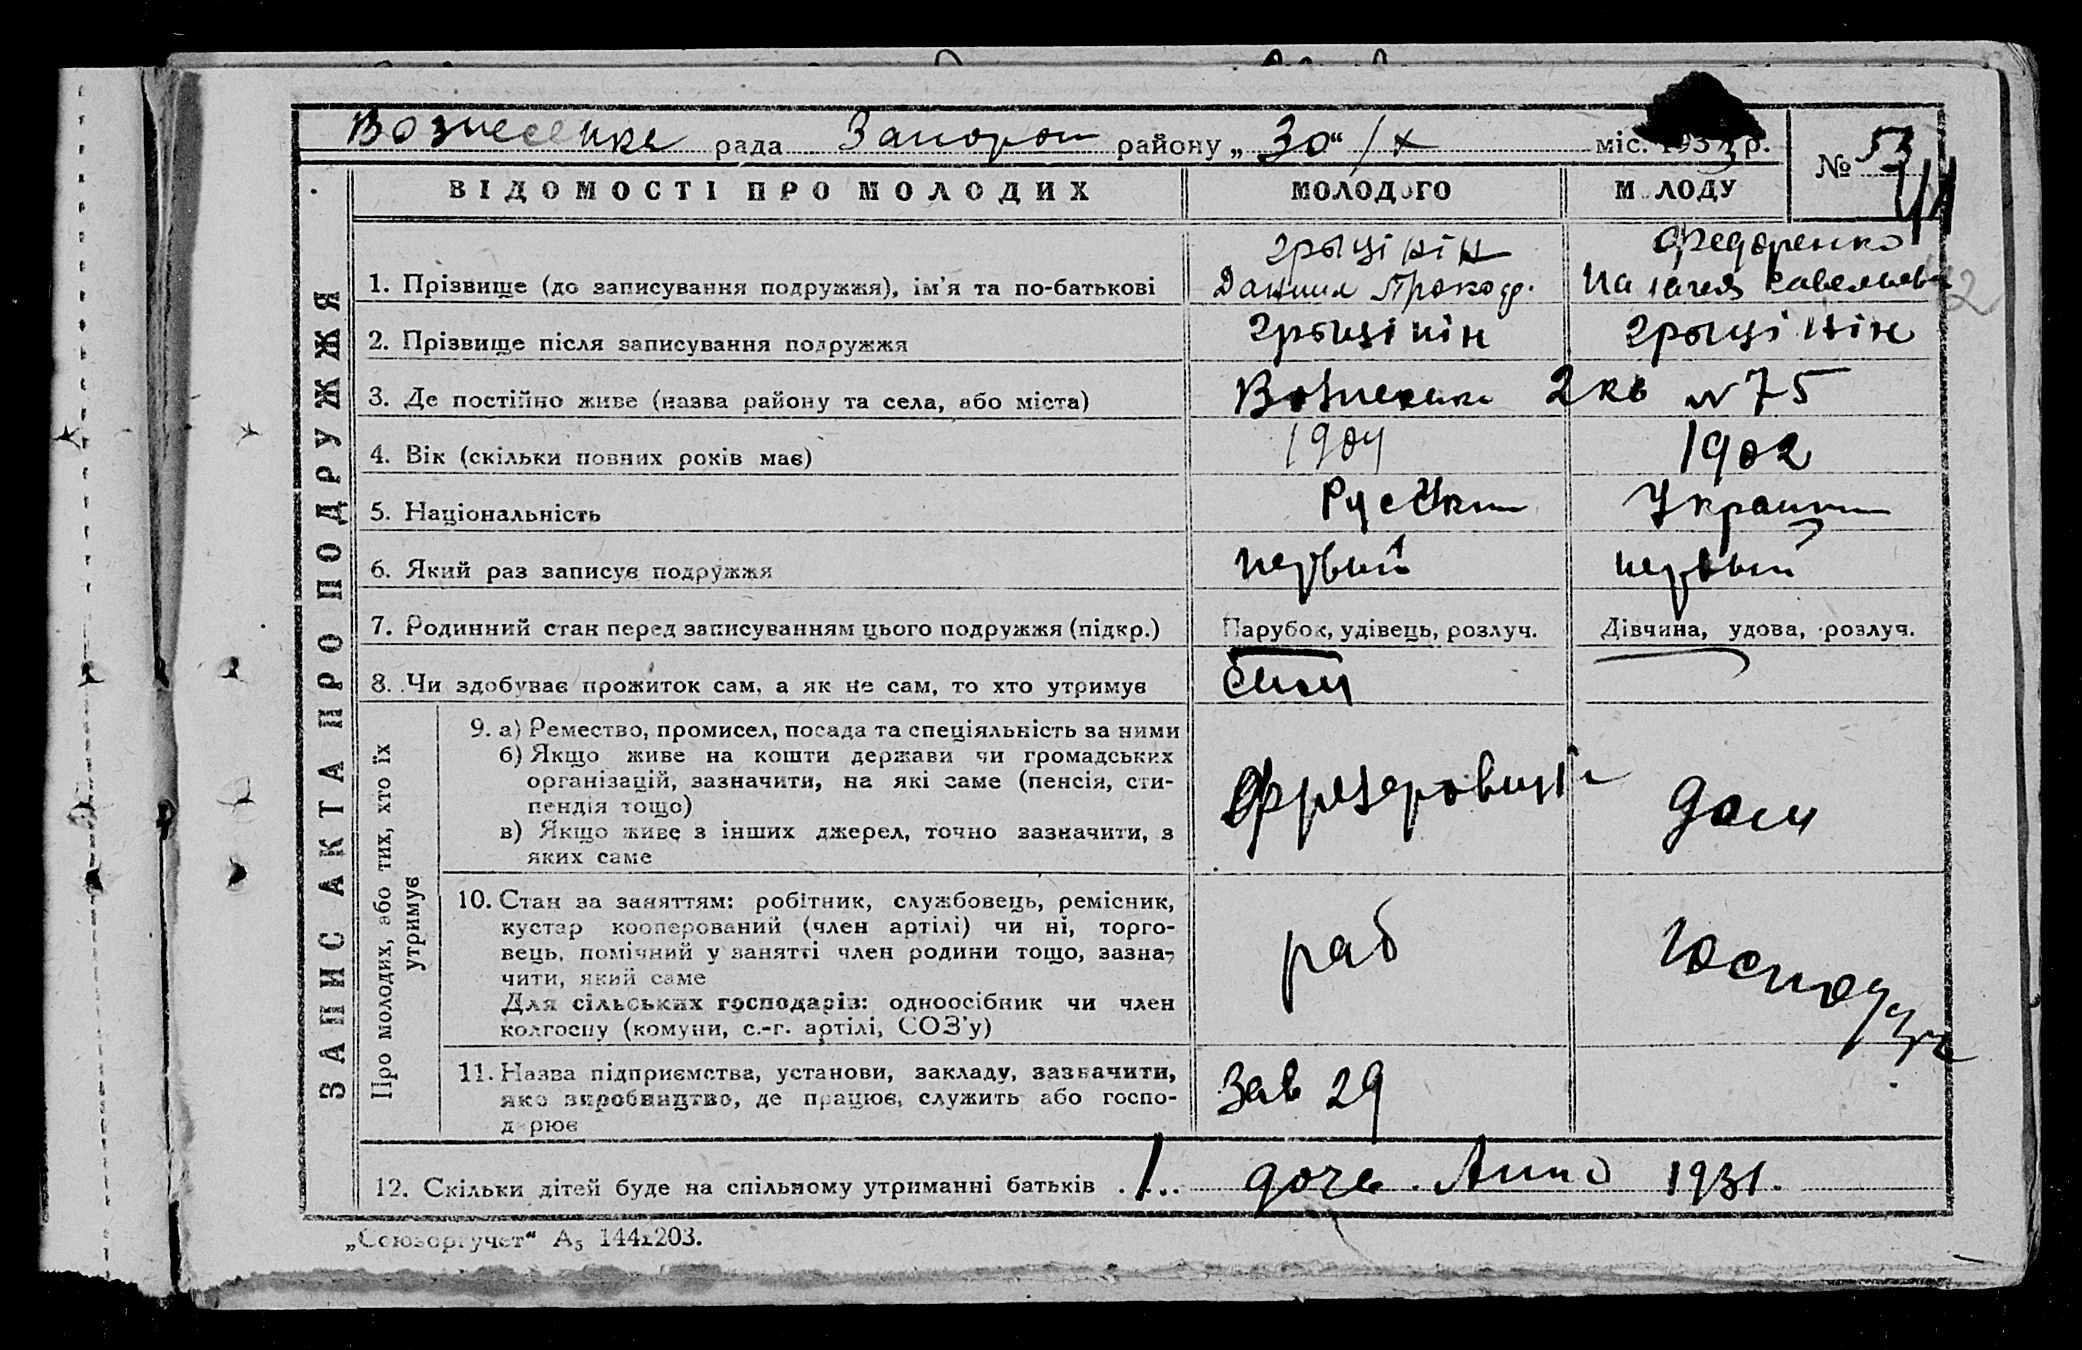 Вознесенка рада Запорож району „ 30 “ /х міс. 1933 р.
№ 53
ВІДОМОСТІ ПРО МОЛОДИХ МОЛОДОГО МОЛОДУ
ЗАПИС АКТА ПРО ПОДРУЖЖЯ
грыцінін Федоренко
1. Прізвище (до записування подружжя), ім’я та по-батькові Даниил Прокоф. Палагея Савельевн
2. Прізвище після записування подружжя грыцінін грыцінін
3. Де постійно живе (назва району та села, або міста) Вознесенк 2 кв № 75
4. Вік (скільки повних років має) 1904 1902
5. Національність Русский Украин
6. Який раз записує подружжя первый первый
7. Родинний стан перед записуванням цього подружжя (підкр.) Парубок, удівець, розлуч. Дівчина, удова, розлуч.
8. Чи здобуває прожиток сам, а як не сам, то хто утримує сам
Про молодих, або тих, хто їх
утримує
9. а) Ремество, промисел, посада та спеціяльність за ними
б) Якщо живе на кошти держави чи громадських
організацій, зазначити, на які саме (пенсія, сти-
пендія тощо)
в) Якщо живе з інших джерел, точно зазначити, з
яких саме
Фрезеровщик дом
10. Стан за заняттям: робітник, службовець, ремісник,
кустар кооперований (член артілі) чи ні, торго-
вець, помічний у занятті член родини тощо, зазна-
чити, який саме
Для сільських господарів: одноосібник чи член
колгоспу (комуни, с.-г. артілі, СОЗ’у)
раб
11. Назва підприємства, установи, закладу, зазначити,
яко виробництво, де працює, служить або госпо-
дарює
Зав 29
12. Скільки дітей буде на спільному утриманні батьків 1. дочь Анна 1931.
„Союзоргучет“ А₅ 144х203.